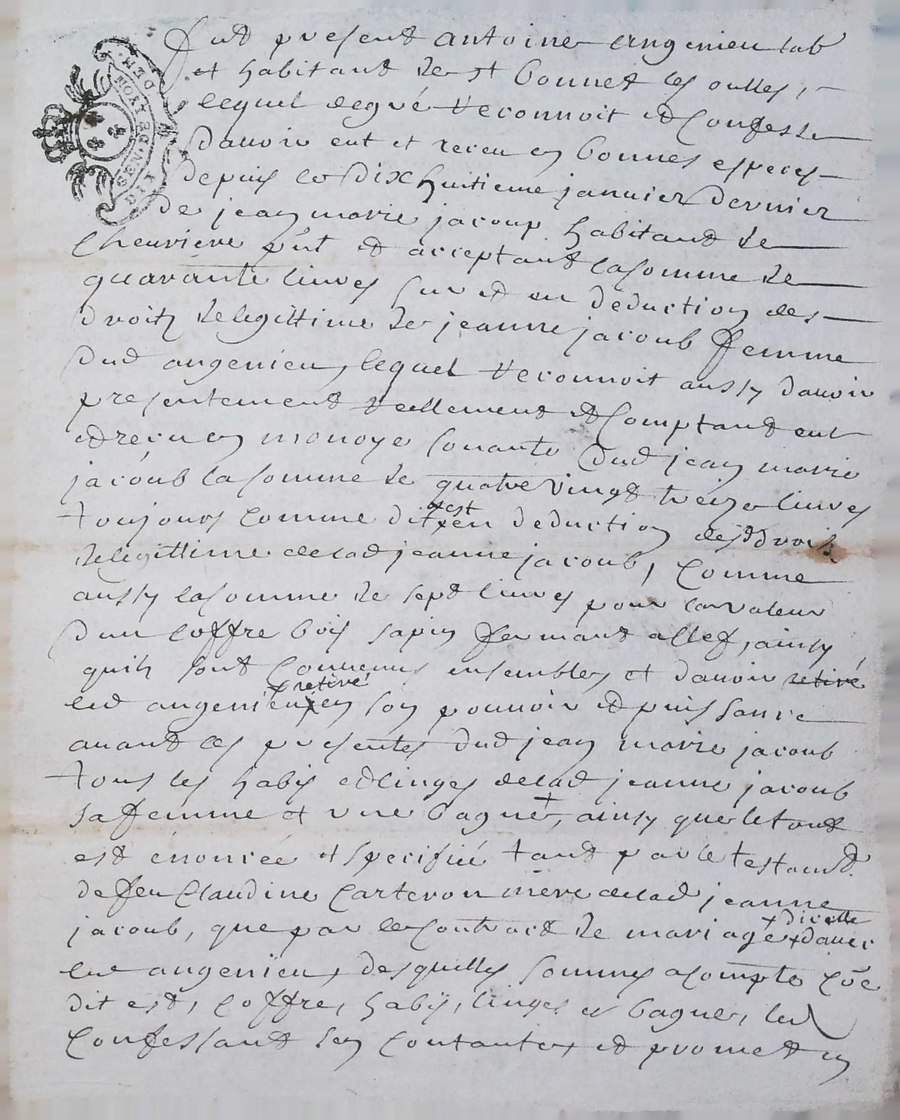 GEN. DE LYON
DIX DEN.
fut present antoine angenieu lab^r
et habitant de st bonnet les oulles,
lequel degré reconnoit et Confesse
d'avoir eut et receu en bonnes especes
depuis le Dix huitieme janvier dernier
de jean marie jacoup habitant de
Chevriere p^nt et acceptant la somme de
quarante livres sur et en deduction des
droits de legittime de jeanne jacoub femme
dud angenieu, lequel reconnoit aussy davoir
presentement reellement et Comptant eut
et receu en monoye sonante dud jean marie
jacoub la somme de quatre vingt treize livres
toujours comme dit est en deduction desd droits
de legittime de lad jeanne jacoub, Comme
aussy la somme de sept livres pour la valeur
d'un Coffre bois sapin fermant a clef, ainsy
quils sont Convenus ensembles et davoir retiré
led angenieu x en son pouvoir et puissance x retiré
avant ces presentes dud jean marie jacoub
tous les habis et linges de lad jeanne jacoub
sa femme et une bague +, ainsy que le tout
est enoncée et specifié tant par le testam^t
de feu Claudine Carteron mère de lad jeanne
jacoub, que par le Contract de mariage x davec x dicelle
led angenieu, desquelles sommes a Compte Cõe
dit est, Coffre, habis, linges et bague, led
Confessant sen Contante, et promet en